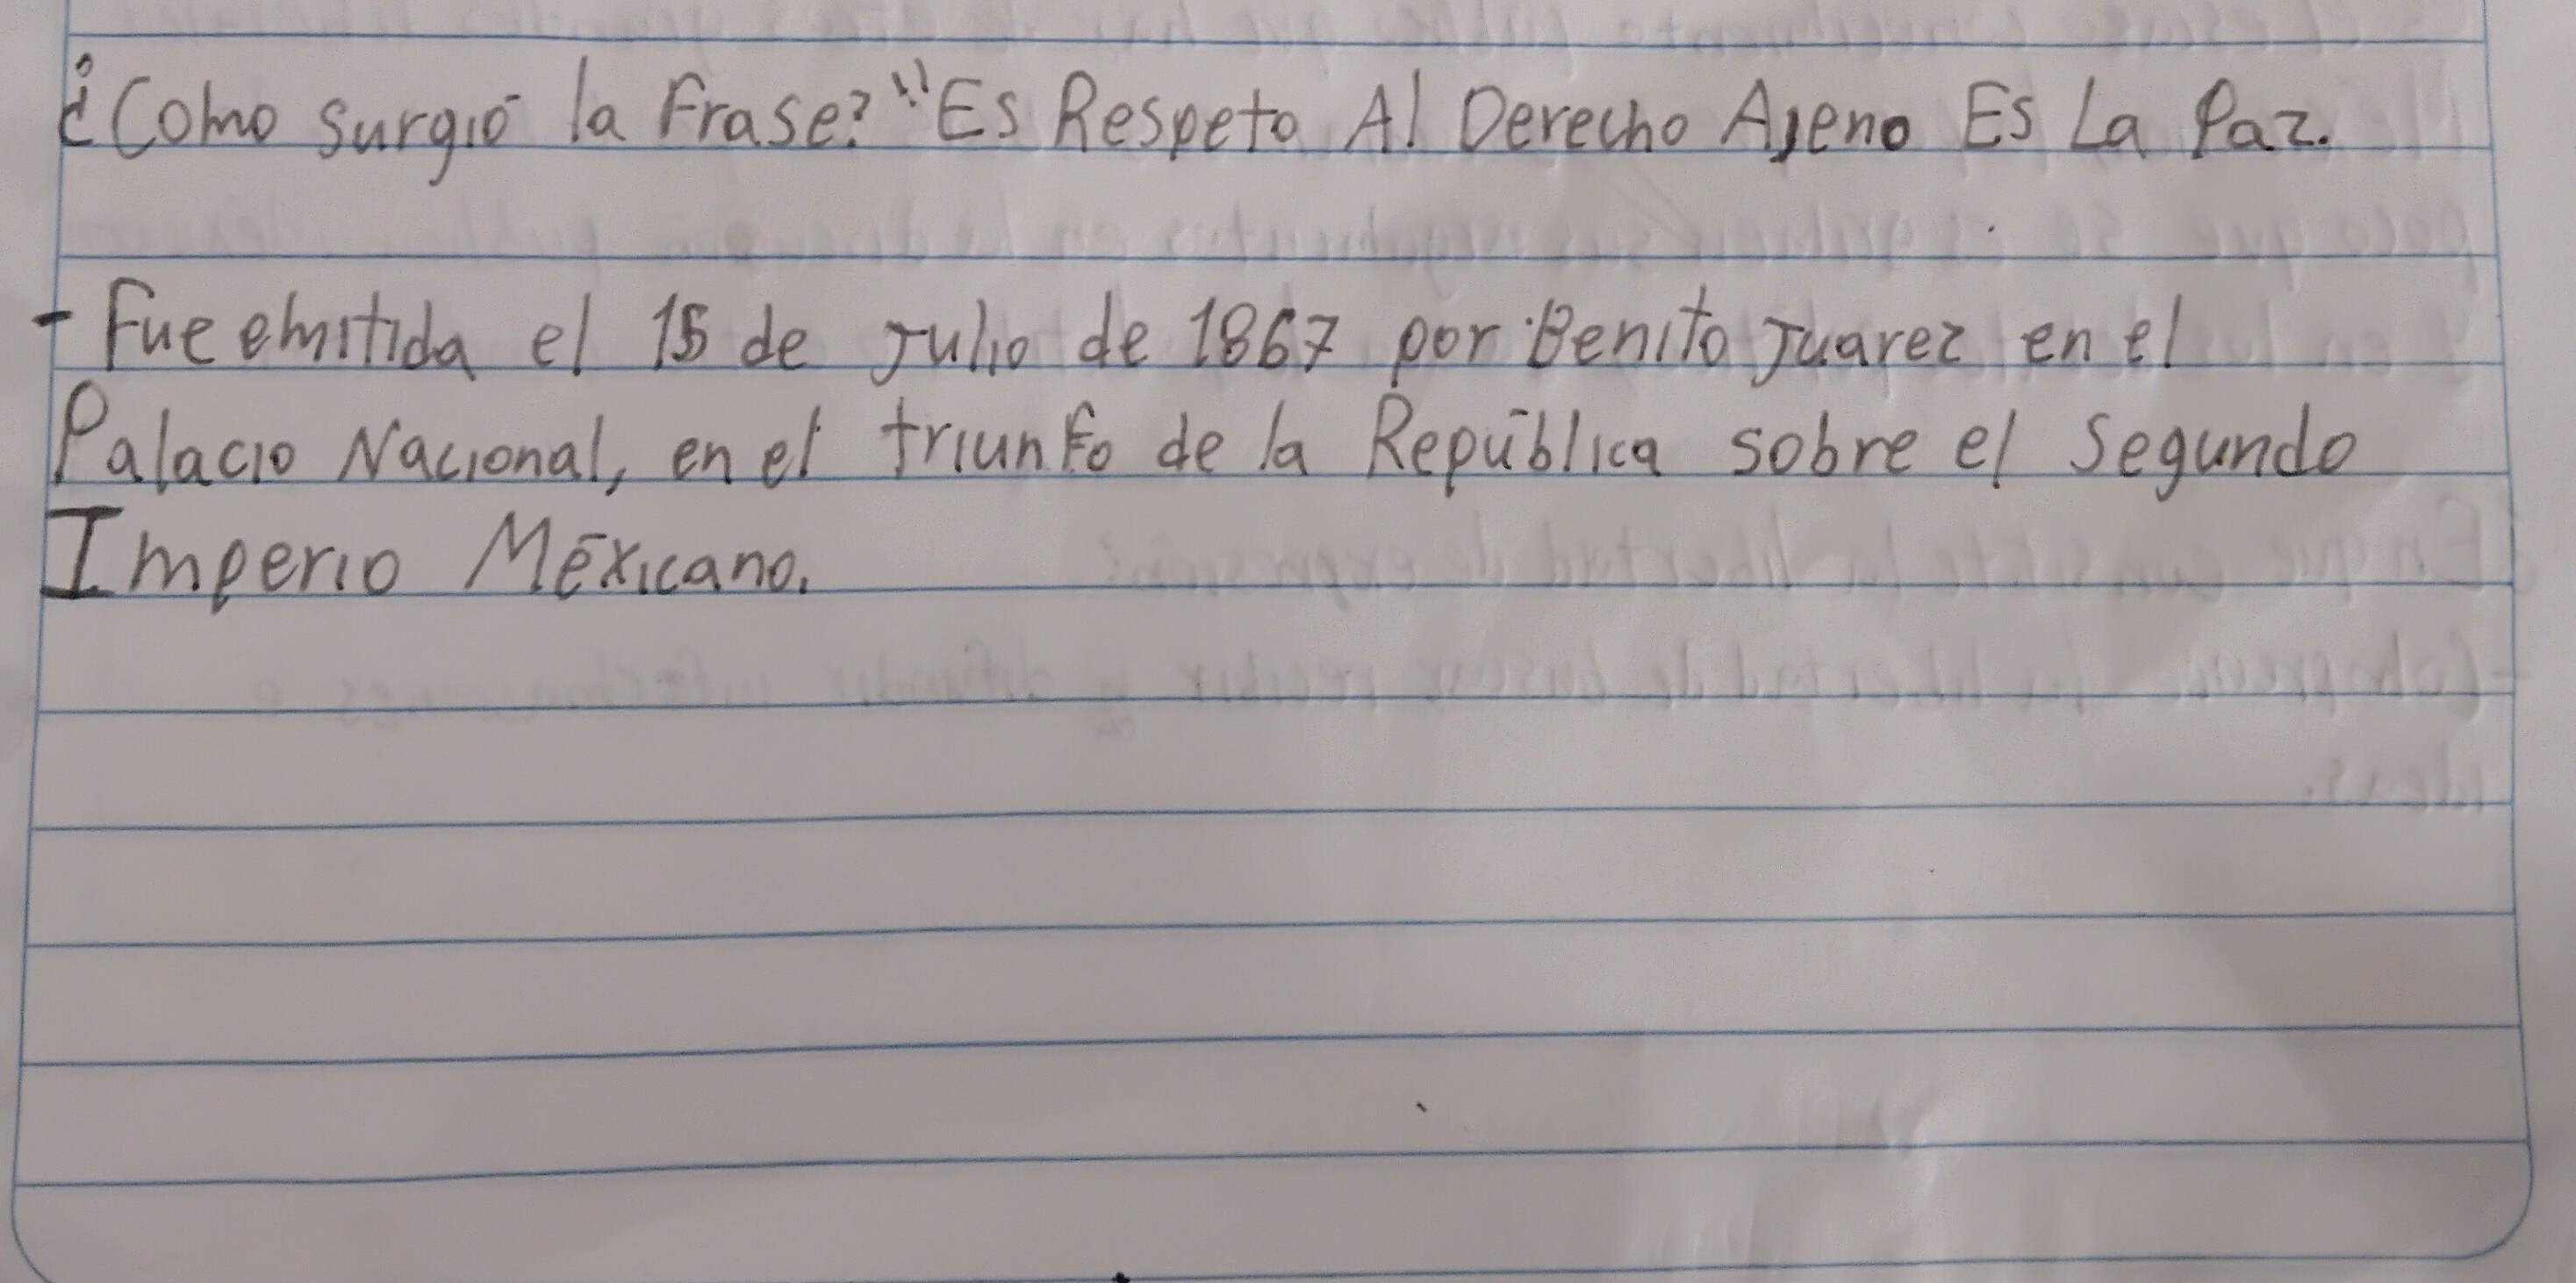 ¿Como surgió la Frase? "Es Respeto Al Derecho Ajeno Es La Paz.
- Fue emitida el 15 de Julio de 1867 por Benito Juarez en el
Palacio Nacional, en el triunfo de la República sobre el Segundo
Imperio Méxicano.